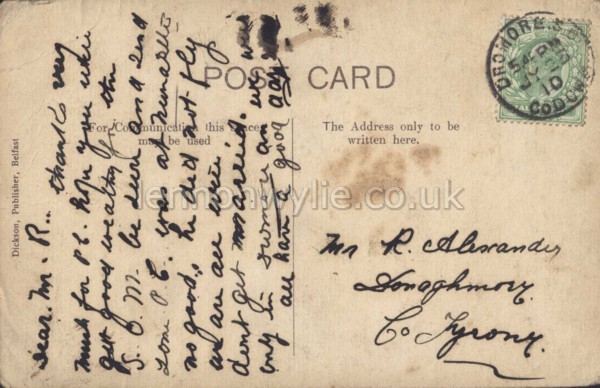 POST CARD
For Communication this Space
may be used
The Address only to be
written here.
Dickson, Publisher, Belfast
DROMORE
CO DOWN
10
Dear Mr. R.. thanks very
much for P.C. hope you will
get good weather for the
S. O. M. be down and send
some P.C. was at
no good, he did not fly
we are all well
dont get married. we will
only in an
all have a good day
Mr R. Alexander
Donaghmore
Co. Tyrone
lennonwylie.co.uk